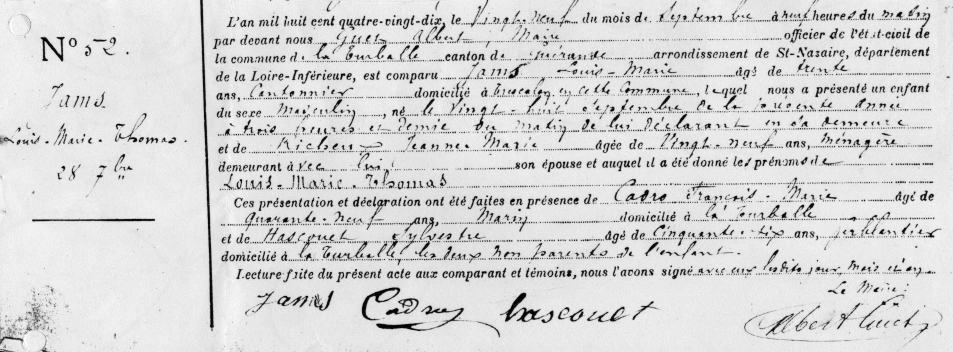 N° 52.
Jams
Louis-Marie-Thomas
28 7bre
L'an mil huit cent quatre-vingt-dix, le Vingt-neuf du mois de Septembre à neuf heures du matin
par devant nous Guet Albert, Maire officier de l'état-civil de
la commune de la Turballe canton de Guérande arrondissement de St-Nazaire, département
de la Loire-Inférieure, est comparu Jams Louis-Marie âgé de trente
ans, Cantonnier domicilié à en cette Commune, lequel nous a présenté un enfant
du sexe masculin, né le Vingt-huit Septembre de la présente année
à trois heures et demie du matin de lui déclarant en sa demeure
et de Richeux Jeanne-Marie âgée de Vingt-neuf ans, ménagère
demeurant avec lui, son épouse et auquel il a été donné les prénoms de
Louis-Marie-Thomas
Ces présentation et déclaration ont été faites en présence de Cadro François-Marie âgé de
quarante-neuf ans, Marin domicilié à la Turballe
et de Hascouet Sylvestre âgé de Cinquante-six ans, ferblantier
domicilié à la Turballe, les deux non parents de l'enfant.
Lecture faite du présent acte aux comparant et témoins, nous l'avons signé avec eux lesdits jour, mois et an.
Le Maire:
Jams Cadro hascouet
Albert Guet